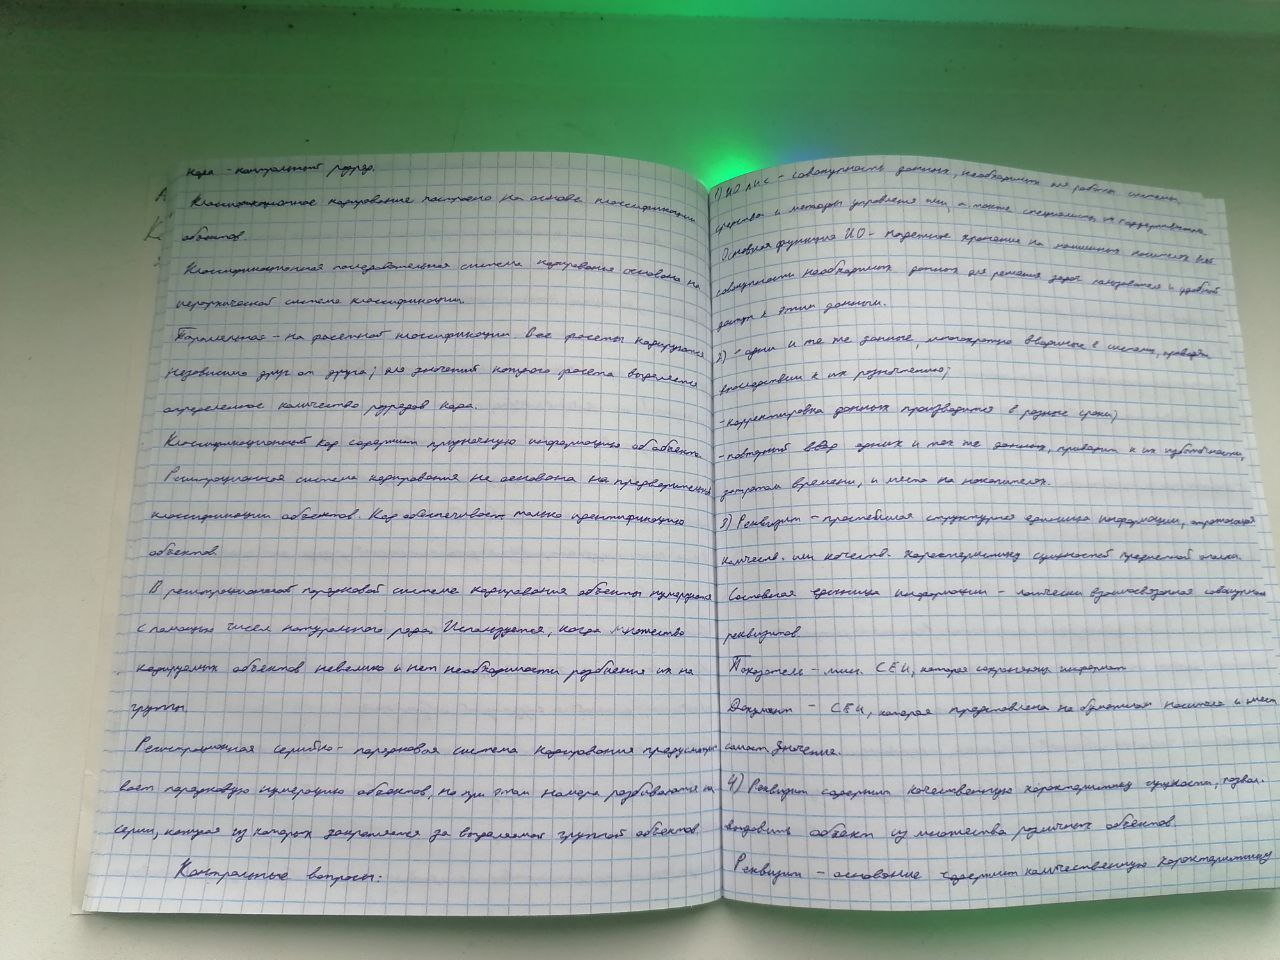 кода - контрольный разряд.
Классификационное кодирование построено на основе классификации
объектов.
Классификационная последовательная система кодирования основана на
иерархической системе классификации.
Параллельная - на фасетной классификации. Все фасеты кодируются
независимо друг от друга; для значений которого фасета выделяется
определенное количество разрядов кода.
Классификационный код содержит призначную информацию об объекте.
Регистрационная система кодирования не основана на предварительной
классификации объектов. Код обеспечивает только идентификацию
объектов.
В регистрационной порядковой системе кодирования объекты нумеруются
с помощью чисел натурального ряда. Используется, когда множество
кодируемых объектов невелико и нет необходимости разбиения их на
группы.
Регистрационная серийно-порядковая система кодирования предусматри-
вает порядковую нумерацию объектов, но при этом номера разбиваются на
серии, которая из которых закрепляется за выделяемой группой объектов.
Контрольные вопросы:
1) ИО - совокупность данных, необходимых для работы системы,
средства и методы управления ими, а также специалисты,
Основная функция ИО - надежное хранение на машинных носителях всей
совокупности необходимых данных для решения задач пользователя и удобный
доступ к этим данным.
2) - одни и те же данные, многократно вводимые в систему, приводят
впоследствии к их разночтению;
- корректировка данных производится в разные сроки;
- повторный ввод одних и тех же данных, приводит к их избыточности,
затратам времени, и места на накопителях.
3) Реквизит - простейшая структурная единица информации, отражающая
количеств. или качеств. характеристику сущностей предметной
Составная единица информации - логически взаимосвязанная совокупность
реквизитов.
Показатель - мин. СЕИ, которая информат
Документ - СЕИ, которая представлена на бумажном носителе и имеет
самост значение.
4) Реквизит содержит качественную характеристику сущности, позвол.
выделить объект из множества различных объектов.
Реквизит - основание содержит количественную характеристику